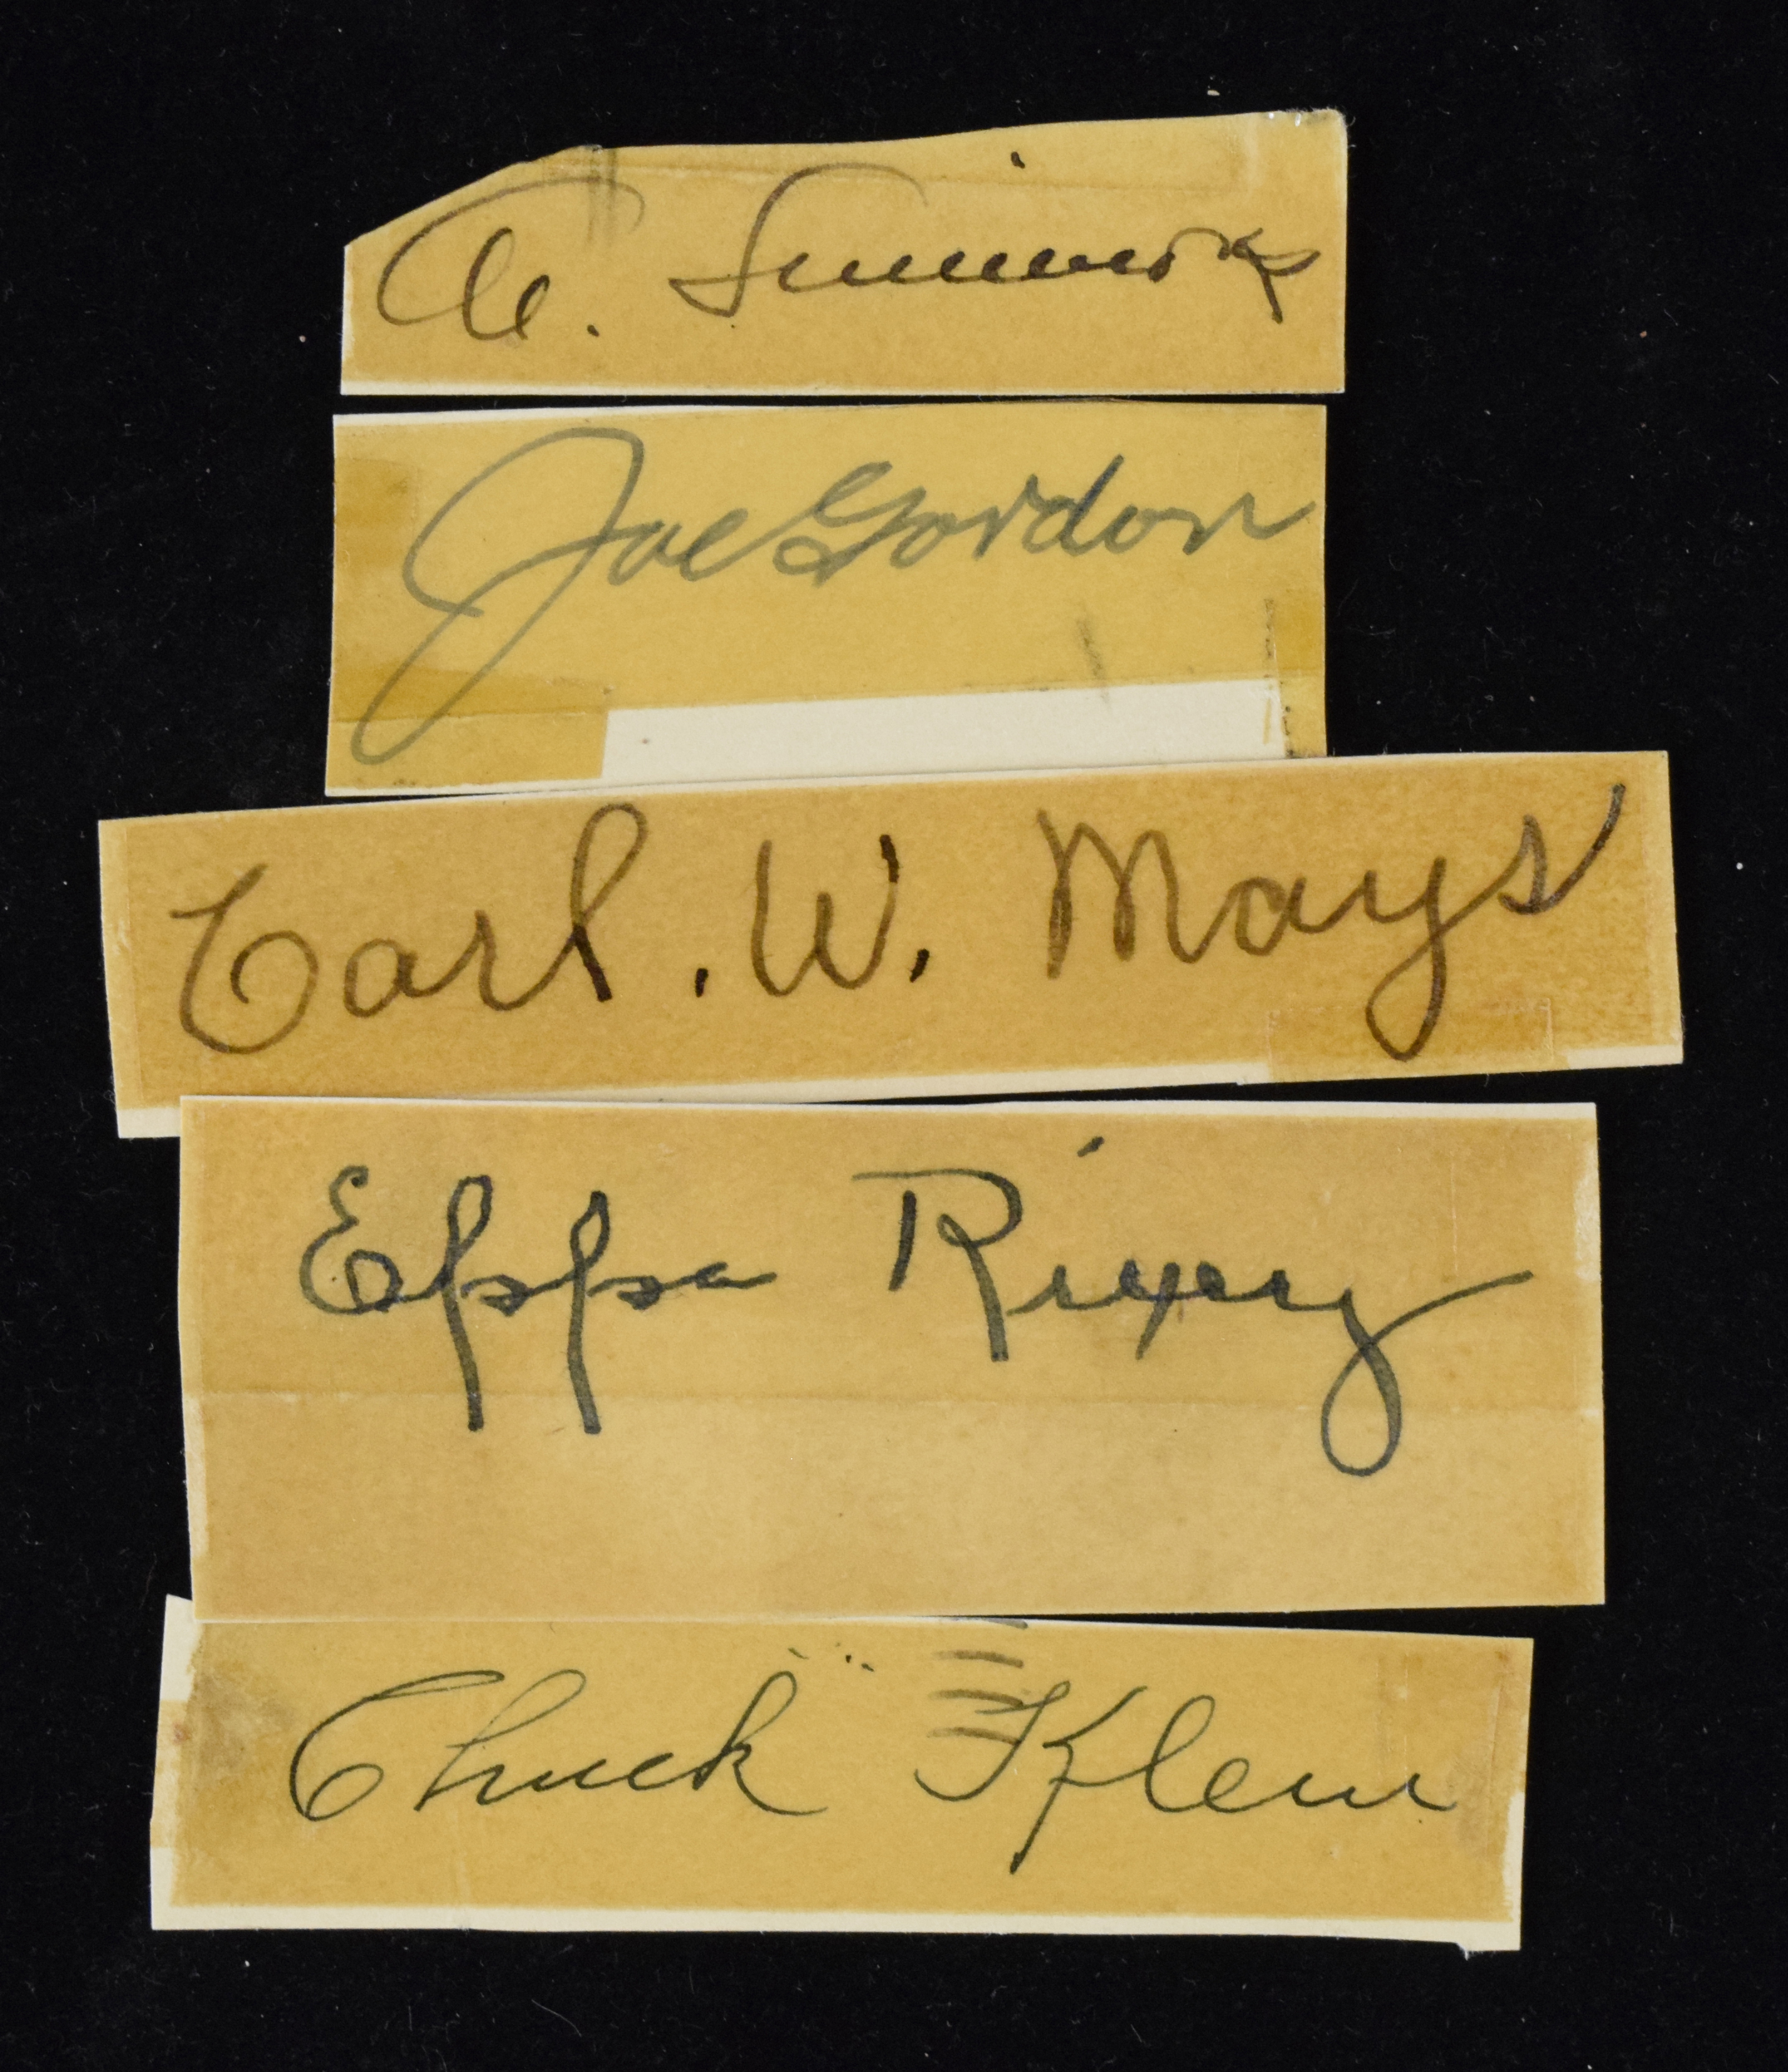 Al. Simmons
Joe Gordon
Carl. W. Mays
Eppa Rixey
Chuck Klein